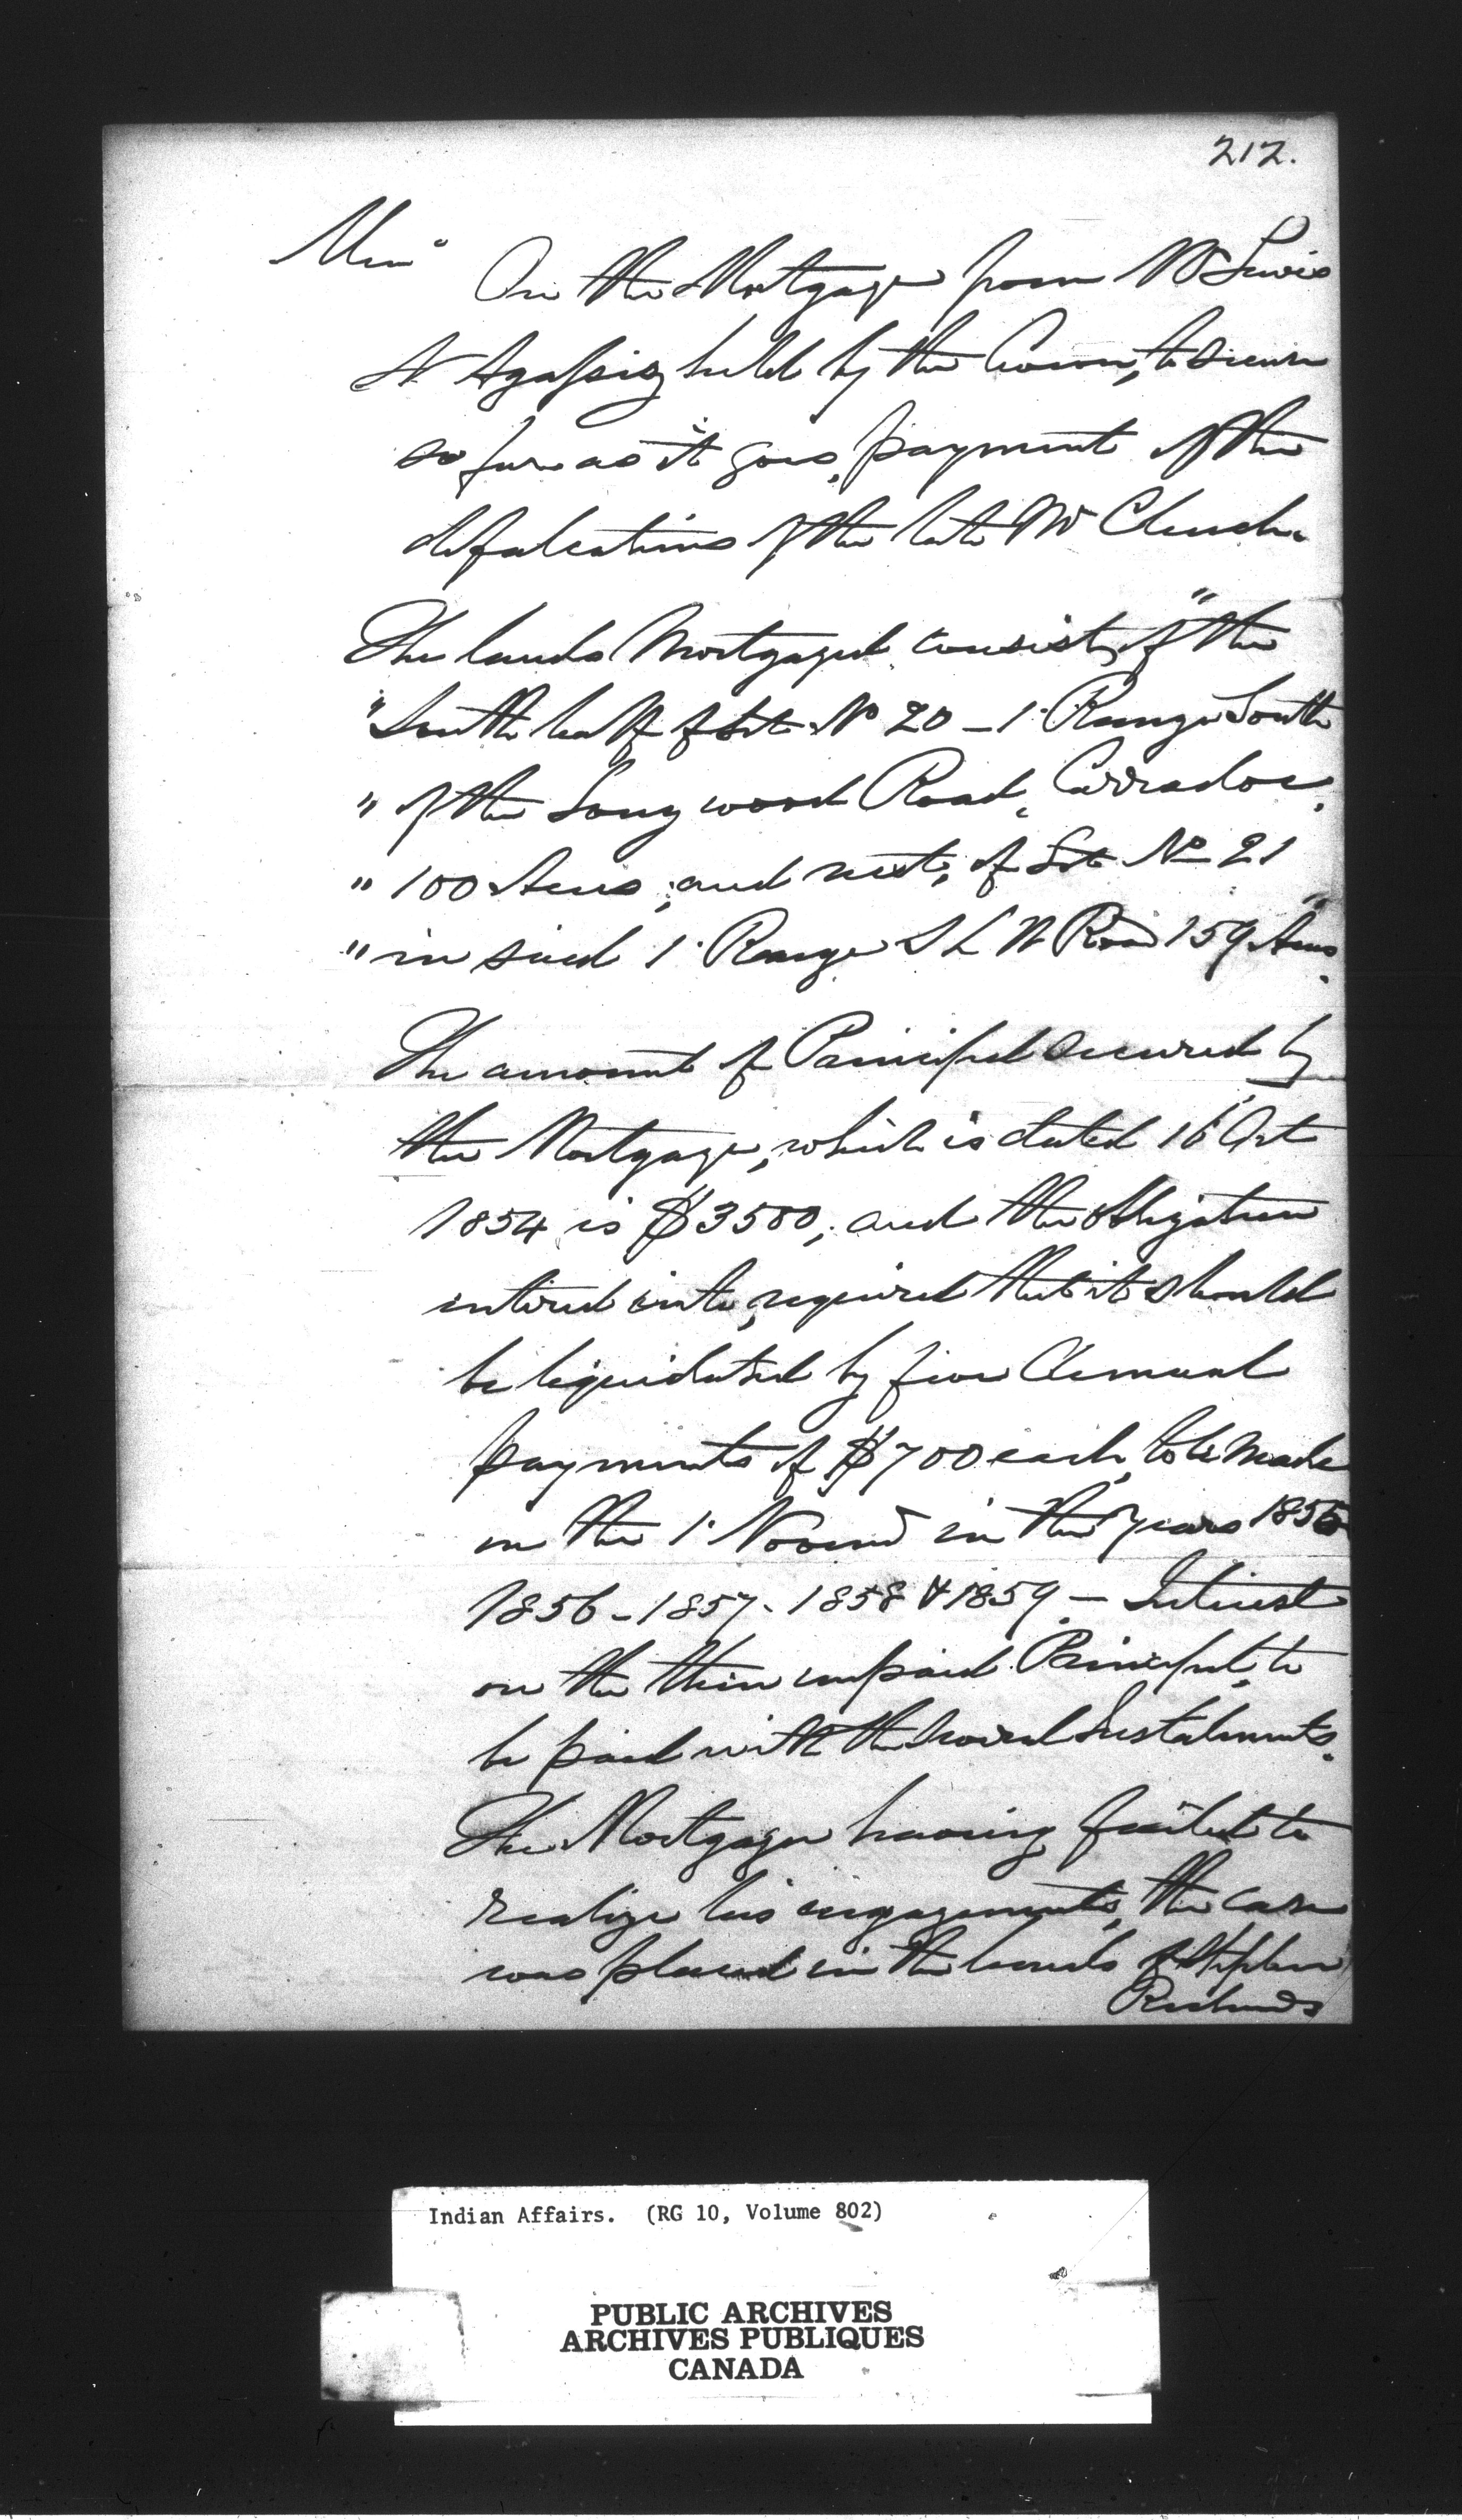 212.
Mem°
On the Mortgage from Mr Lewis
N Agassiz held by the Crown, to secure
so far as it goes, payment of the
defalcations of the late Mr Clench.
The lands Mortgaged consist of "the
"South half of Lot No 20 - 1st Range South
" of the Longwood Road, Carradoc,
" 100 Acres; and rest, of Lot No 21
" in said 1st Range S L W Road 159 Acres".
The amount of Principal secured by
the Mortgage, which is dated 16 Oct
1854 is $3500; and the obligation
entered into, required that it should
be liquidated by five Annual
payments of $700 each, to be made
on the 1st Novemr in the years 1855
1856 - 1857 - 1858 & 1859 - Interest
on the then unpaid Principal, to
be paid with the several Instalments.
The Mortgager having failed to
realize his engagements, the case
was placed in the hands of Stephen
Richards
Indian Affairs. (RG 10, Volume 802)
PUBLIC ARCHIVES
ARCHIVES PUBLIQUES
CANADA